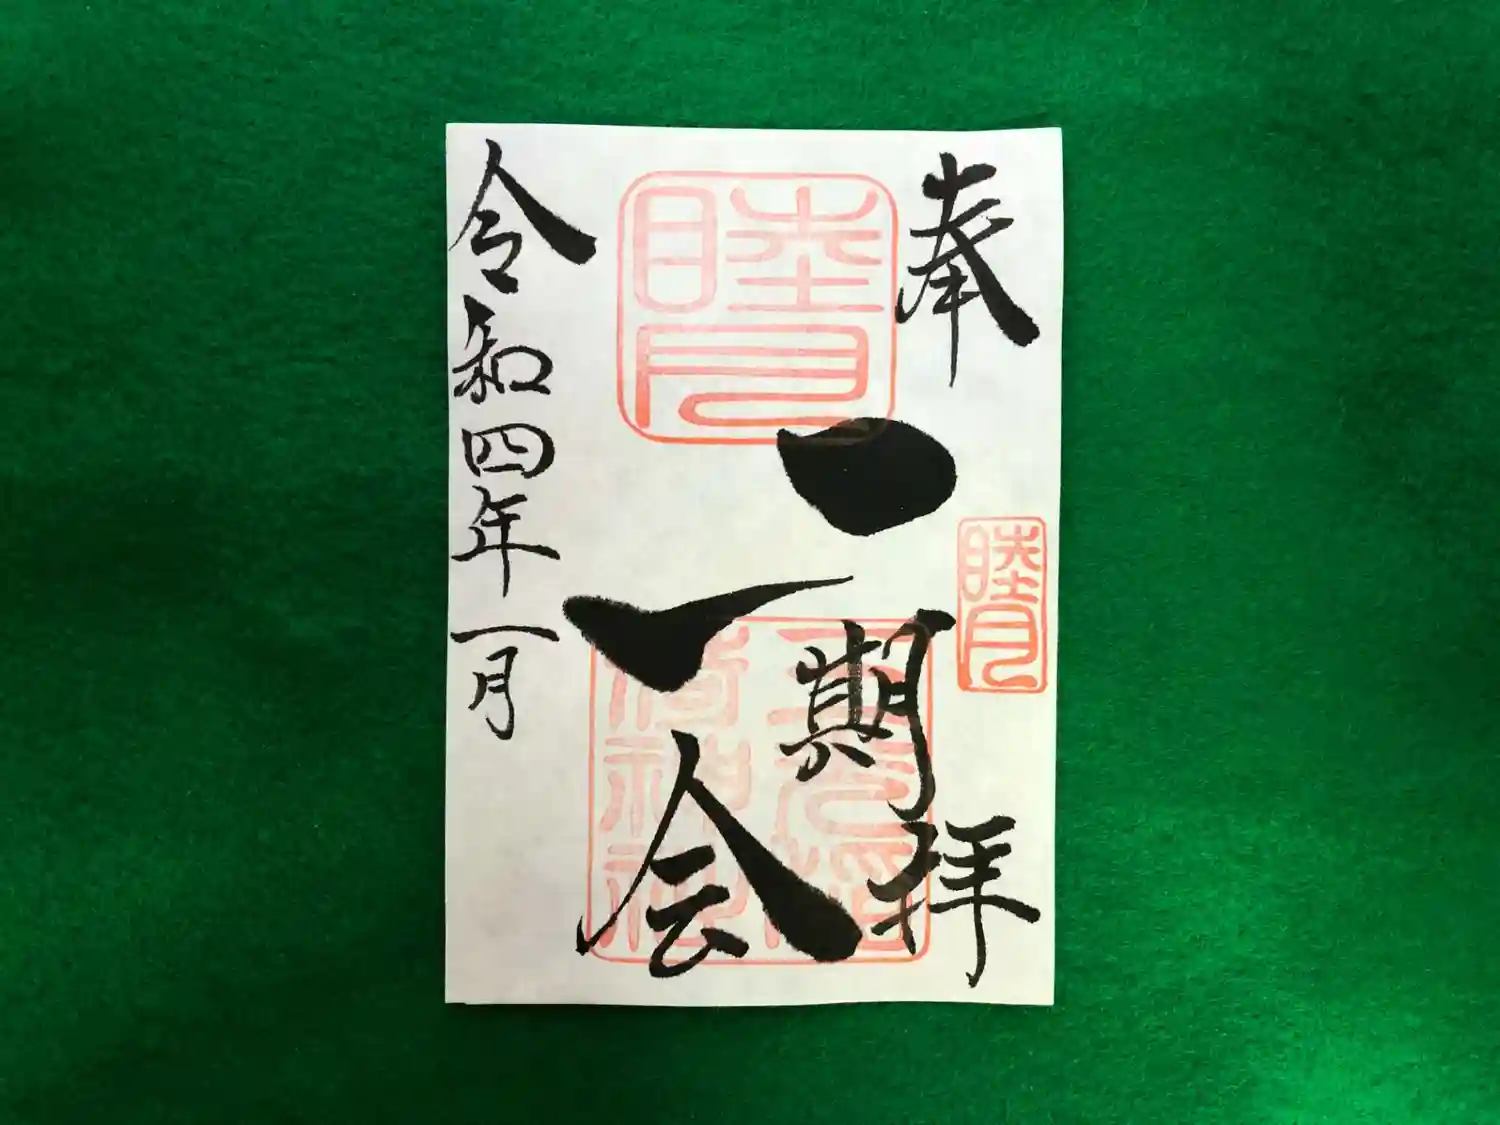 奉拝
睦月
一期
一会
睦月
令和四年一月